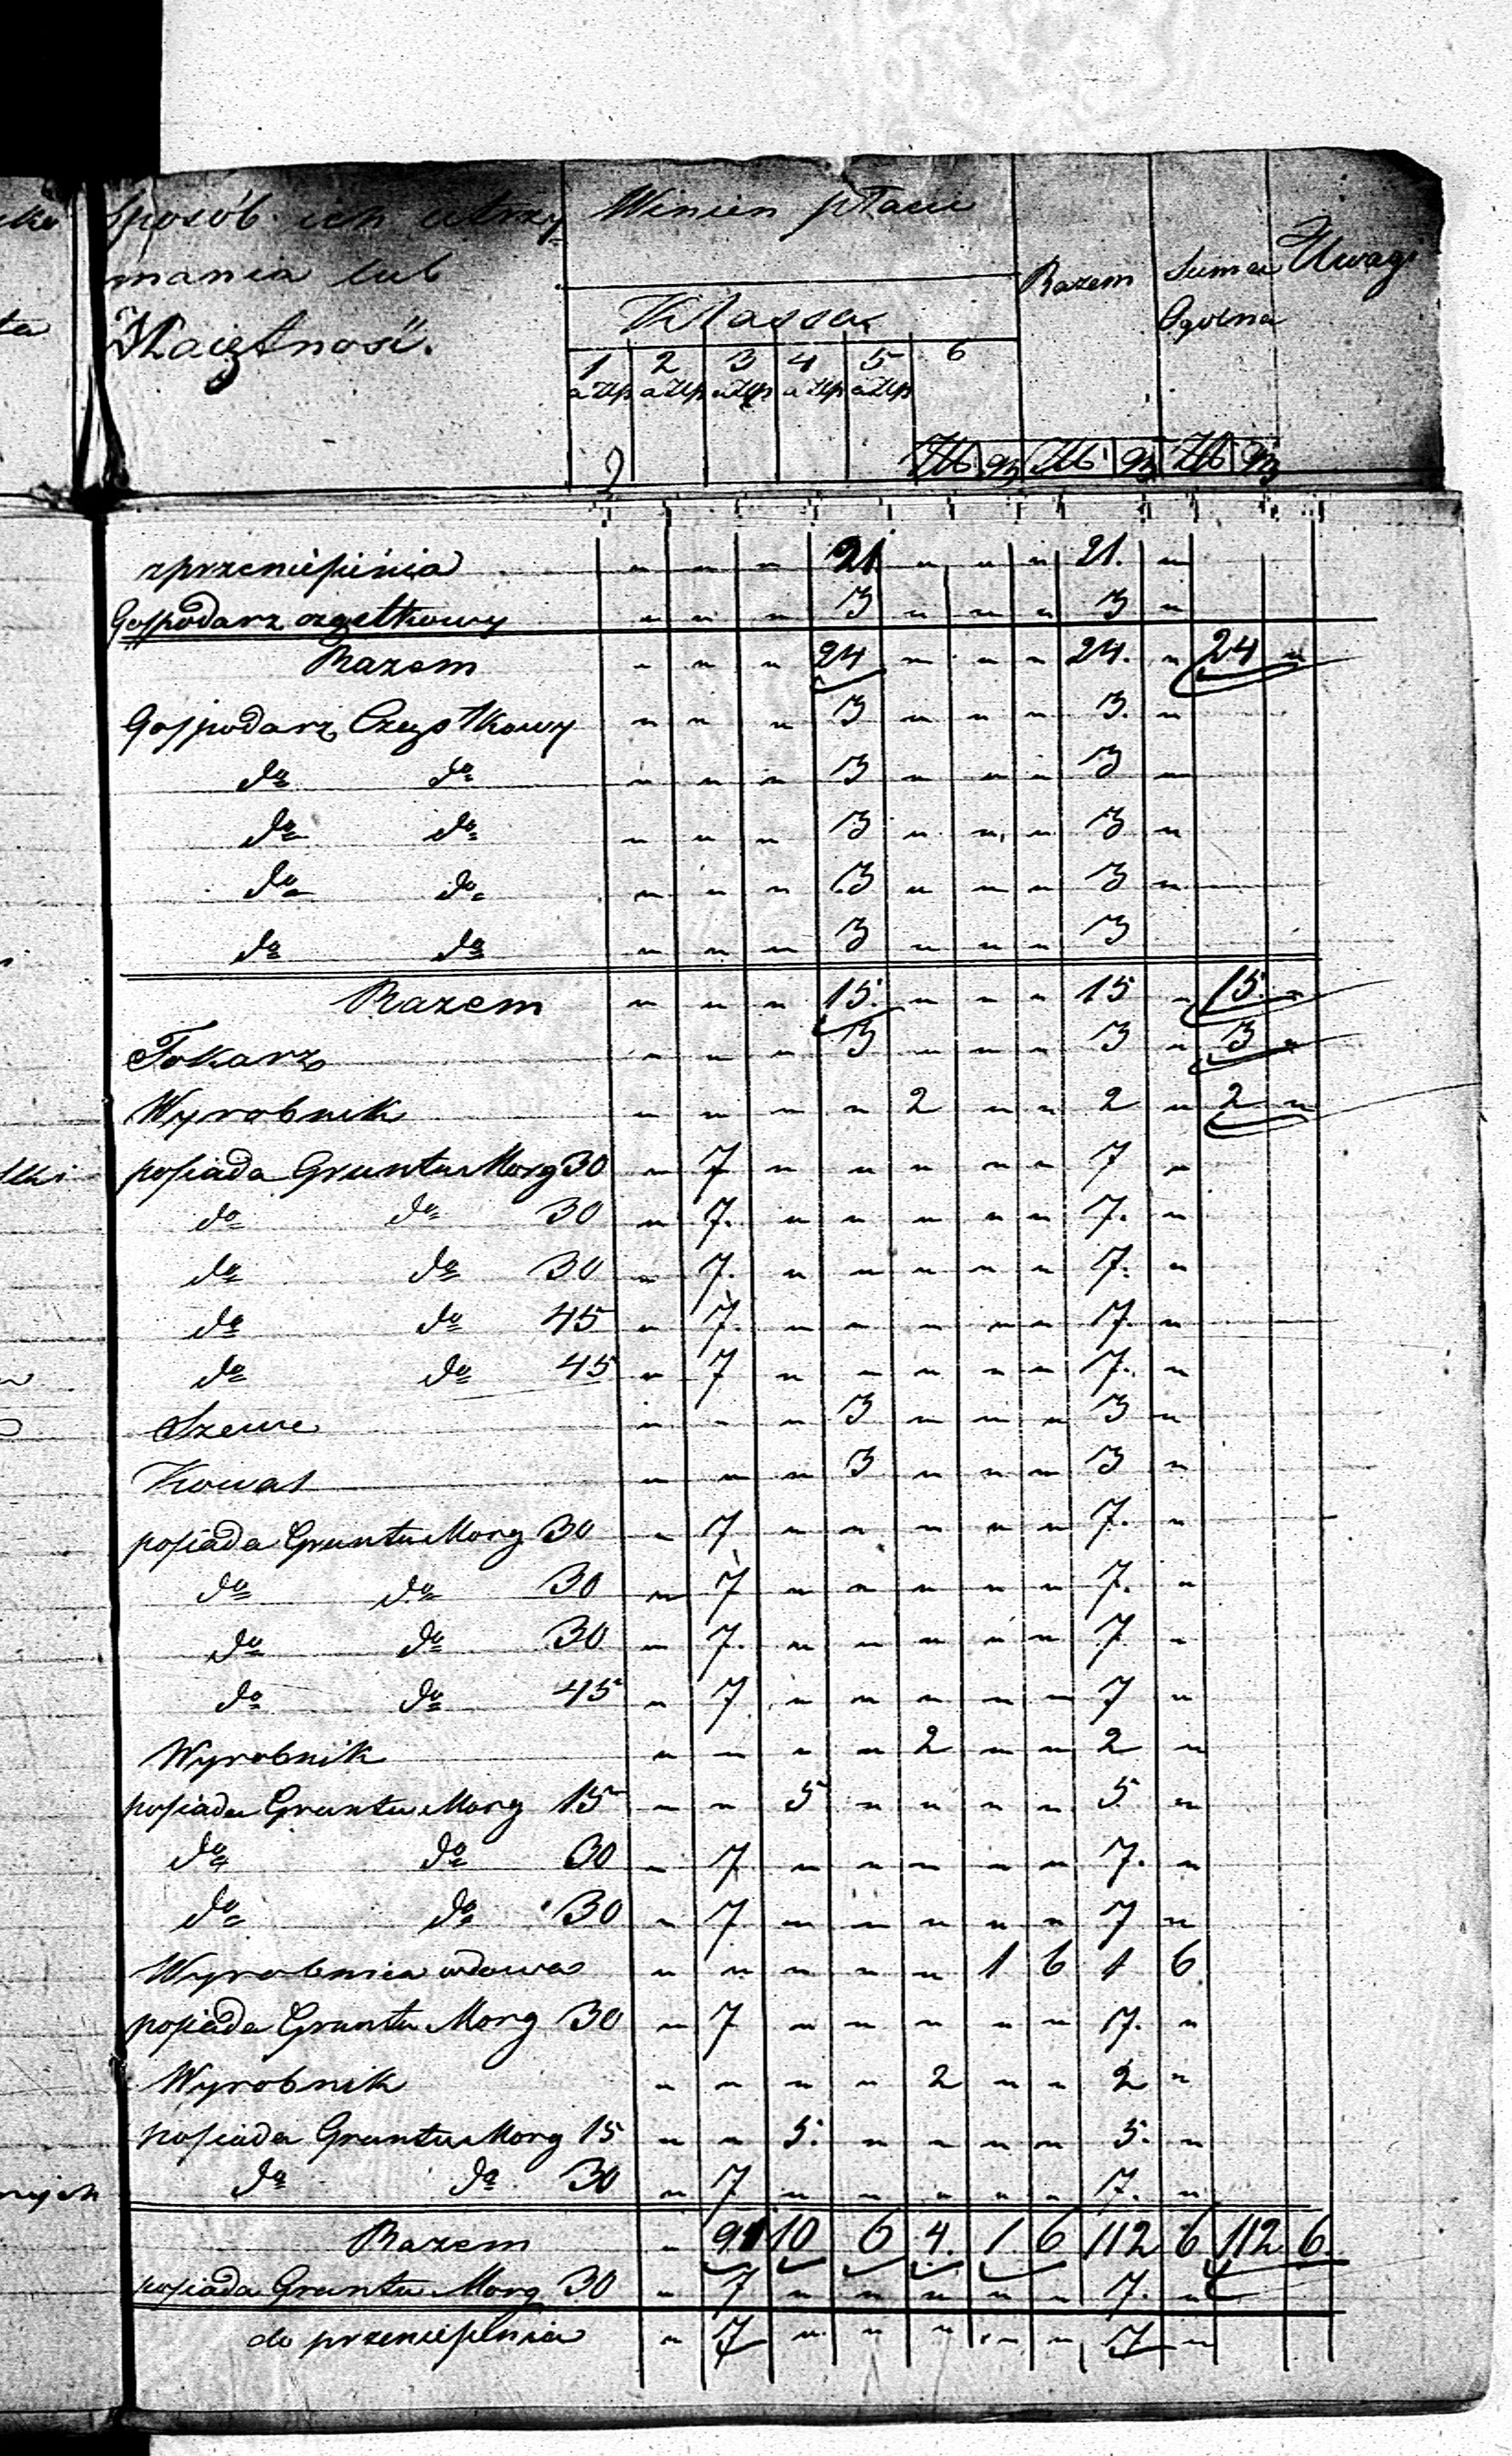 sposób ich utrzy=
mania lub
Majętność.
Winien płacić
Klassa
1 2 3 4 5 6
a Złp a Złp a Złp a Złp a Złp
Razem
Summa Ogólna
Uwagi
Zł gr Zł gr Zł gr
zprzeniesienia " " " 21 " " " 21. "
Gospodarz cząstkowy " " " 3 " " " 3 "
Razem " " " 24 " " " 24. " 24 "
Gospodarz Cząstkowy " " " 3 " " " 3. "
do do " " " 3 " " " 3 "
do do " " " 3 " " " 3 "
do do " " " 3 " " " 3 "
do do " " " 3 " " " 3
Razem " " " 15. " " " 15 " 15. "
Tokarz " " " 3 " " " 3 " 3 "
Wyrobnik " " " " 2 " " 2 " 2 "
posiada Gruntu Morg 30 " 7 " " " " " 7 "
do do 30 " 7. " " " " " 7. "
do do 30 " 7. " " " " " 7. "
do do 45 " 7. " " " " " 7. "
do do 45 " 7 " " " " " 7. "
Szewc " " " 3 " " " 3 "
Kowal " " " 3 " " " 3 "
posiada Gruntu Morg 30 " 7 " " " " " 7. "
do do 30 " 7 " " " " " 7. "
do do 30 " 7. " " " " " 7 "
do do 45 " 7 " " " " " 7 "
Wyrobnik " " " " 2 " " 2 "
posiada Gruntu Morg 15 " " 5 " " " " 5 "
do do 30 " 7 " " " " " 7. "
do do 30 " 7 " " " " " 7 "
Wyrobnica wdowa " " " " " 1 6 1 6
posiada Gruntu Morg 30 " 7 " " " " " 7. "
Wyrobnik " " " " 2 " " 2 "
posiada Gruntu Morg 15 " " 5. " " " " 5. "
do do 30 " 7 " " " " " 7. "
Razem " 91 10 6 4. 1. 6 112 6 112 6
posiada Gruntu Morg 30 " 7 " " " " " 7. "
do przeniesienia " 7 " " " " " 7 "